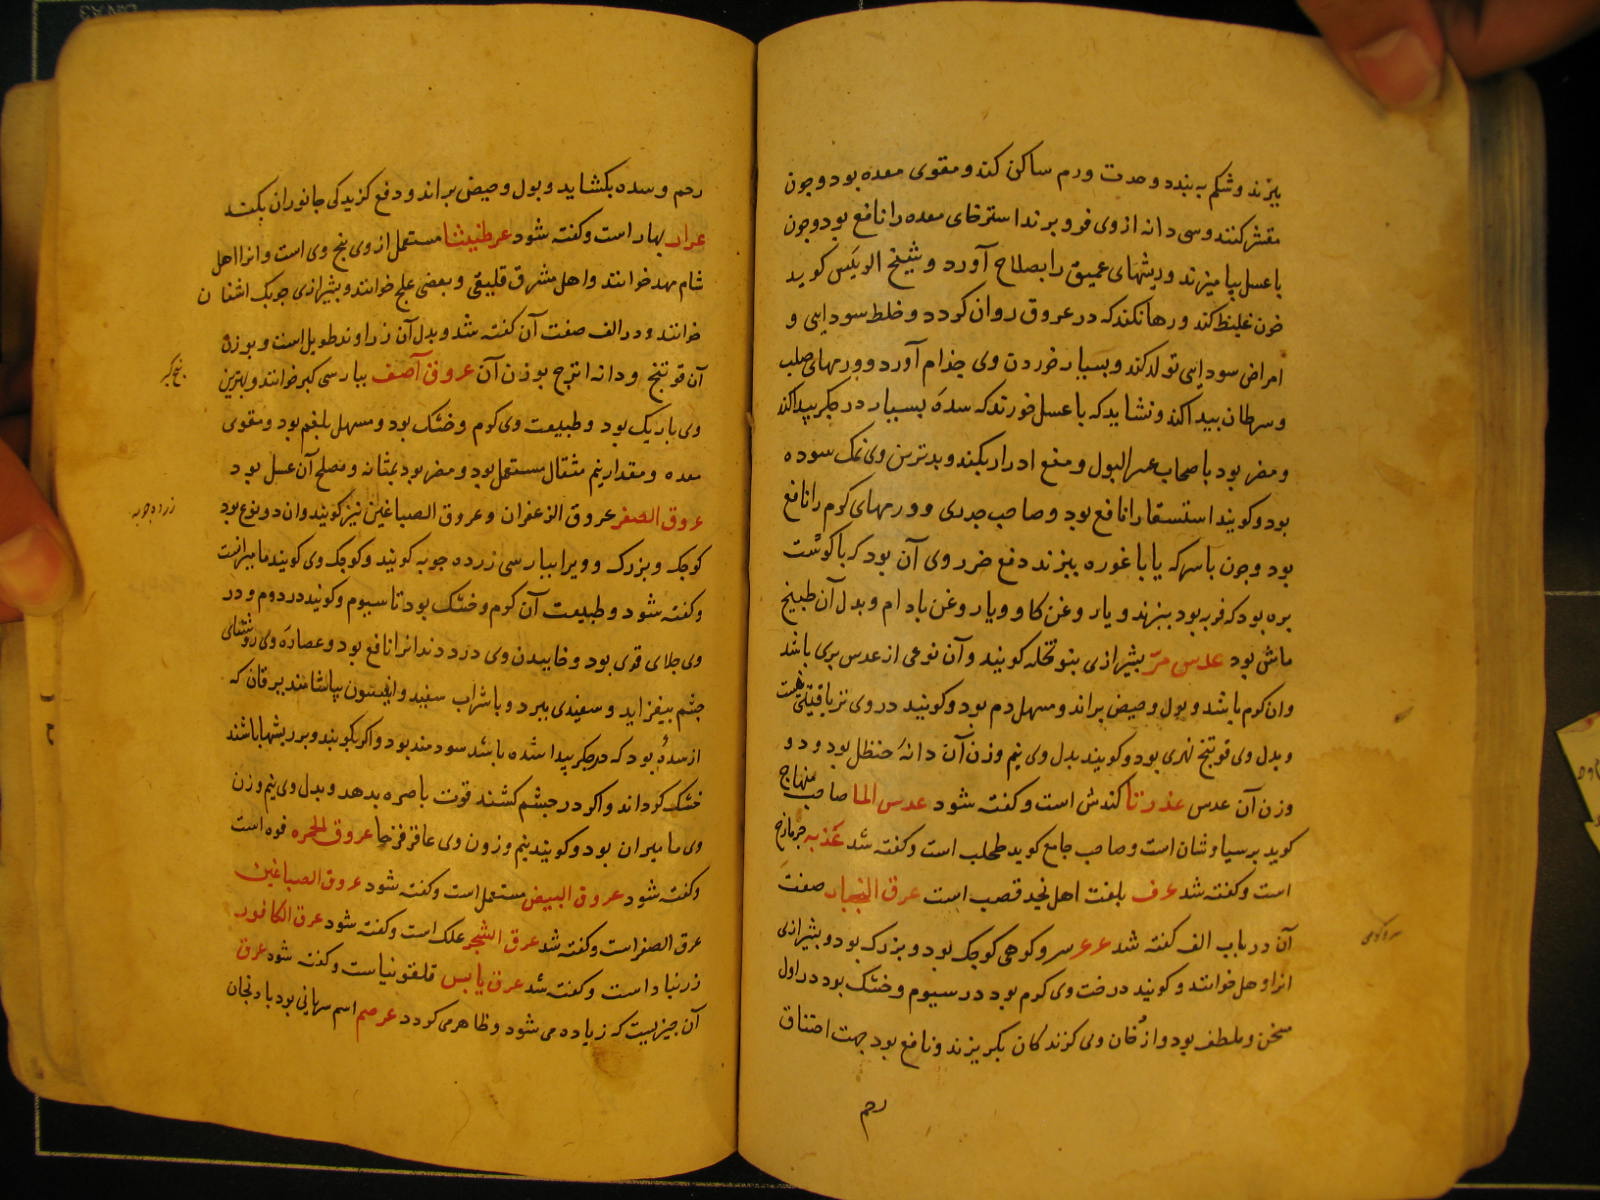 بپزند و شکم به بندد و حدت ورم ساکن کند و مقوی معده بود و چون
مقشر کنند و سی دانه از وی فرو برند استرخای معده را نافع بود و چون
با عسل بیامیزند و ریشهای عمیق را بصلاح آورد و شیخ الرییس کوید
خون غلیظ کند و رها نکند که در عروق روان کردد و خلط سودایی و
امراض سودایی تولد کند و بسیار خوردن وی جذام آورد و ورمهای صلب
و سرطان پیدا کند و نشاید که با عسل خورند که سده بسیار در جکر پیدا کند
و مضر بود باصحاب عسر البول و منع ادرار بکند و بدترین وی نمک سوده
بود و کویند استسقا را نافع بود و صاحب جدری و ورمهای کرم را نافع
بود و چون با سرکه یا با غوره بپزند دفع ضرر وی آن بود که با کوشت
بره بود که فربه بود بپزند و یا روغن کاو و یا روغن بادام و بدل آن طبیخ
ماش بود عدس مر بشیرازی بنو نخله کویند و آن نوعی از عدس بری باشد
و ان کرم باشد و بول و حیض براند و مسهل دم بود و کویند در وی تریاقیتی هست
و بدل وی فوتنج نهری بود و کویند بدل وی نیم وزن آن دانهٔ حنظل بود و دو
وزن آن عدس عذرتا کندش است و کفته شود عدس الما صاحب منهاج
کوید برسیاوشان است و صاحب جامع کوید طحلب است و کفته شد عذبه جزمازج
است و کفته شد عرف بلغت اهل نجد قصب است عرق النجار صفت
آن در باب الف کفته شد عرعر سرو کوهی کوچک بود و بزرک بود و بشیرازی
انرا وهل خوانند و کویند درخت وی کرم بود در سیوم و خشک بود در اول
مسخن و ملطف بود و از دخان وی کزندکان بکریزند و نافع بود جهت اختناق
رحم
سرو کوهی
رحم و سده بکشاید و بول و حیض براند و دفع کزیدکی جانوران بکند
عرار بهار است و کفته شود عرطنیثا مستعمل از وی بیخ وی است و انرا اهل
شام مهد خوانند و اهل مشرق قلیقی و بعضی علج خوانند و بشیرازی چوبک اشنان
خوانند و در الف صفت آن کفته شد و بدل آن زراوند طویل است و بوزن
آن فوتنج و دانه اترج بوزن آن عروق آصف بپارسی کبر خوانند و بهترین
وی باریک بود و طبیعت وی کرم و خشک بود و مسهل بلغم بود و مقوی
معده و مقدار نیم مثقال مستعمل بود و مضر بود بمثانه و مصلح آن عسل بود
عروق الصفر عروق الزعفران و عروق الصباغین نیز کویند و ان دو نوع بود
کوچک و بزرک و ویرا بپارسی زرده چوبه کویند و کوچک وی کویند مامیرانست
و کفته شود و طبیعت آن کرم و خشک بود تا سیوم و کویند در دوم و در
وی جلای قوی بود و خاییدن وی درد دندانرا نافع بود و عصاره وی روشنایی
چشم بیفزاید و سفیدی ببرد و با شراب سفید و انیسون بیاشامند یرقان که
از سده بود که در جکر پیدا شده باشد سودمند بود و اکر بکوبند و بر ریشها باشند
خشک کرداند و اکر در چشم کشند قوت باصره بدهد و بدل وی نیم وزن
وی مامیران بود و کویند نیم وزن وی عاقر قرحا عروق الحمره فوه است
و کفته شود عروق البیض مستعمل است و کفته شود عروق الصباغین
عرق الصفر است و کفته شد عرق الشجر علک است و کفته شود عرق الکافور
زرنباد است و کفته شد عرق یابس قلفونیاست و کفته شود عرق
آن چیزیست که زیاده می شود و ظاهر می کردد عرصم اسم سهانی بود بادنجان
بیخ کبر
زرده چوبه